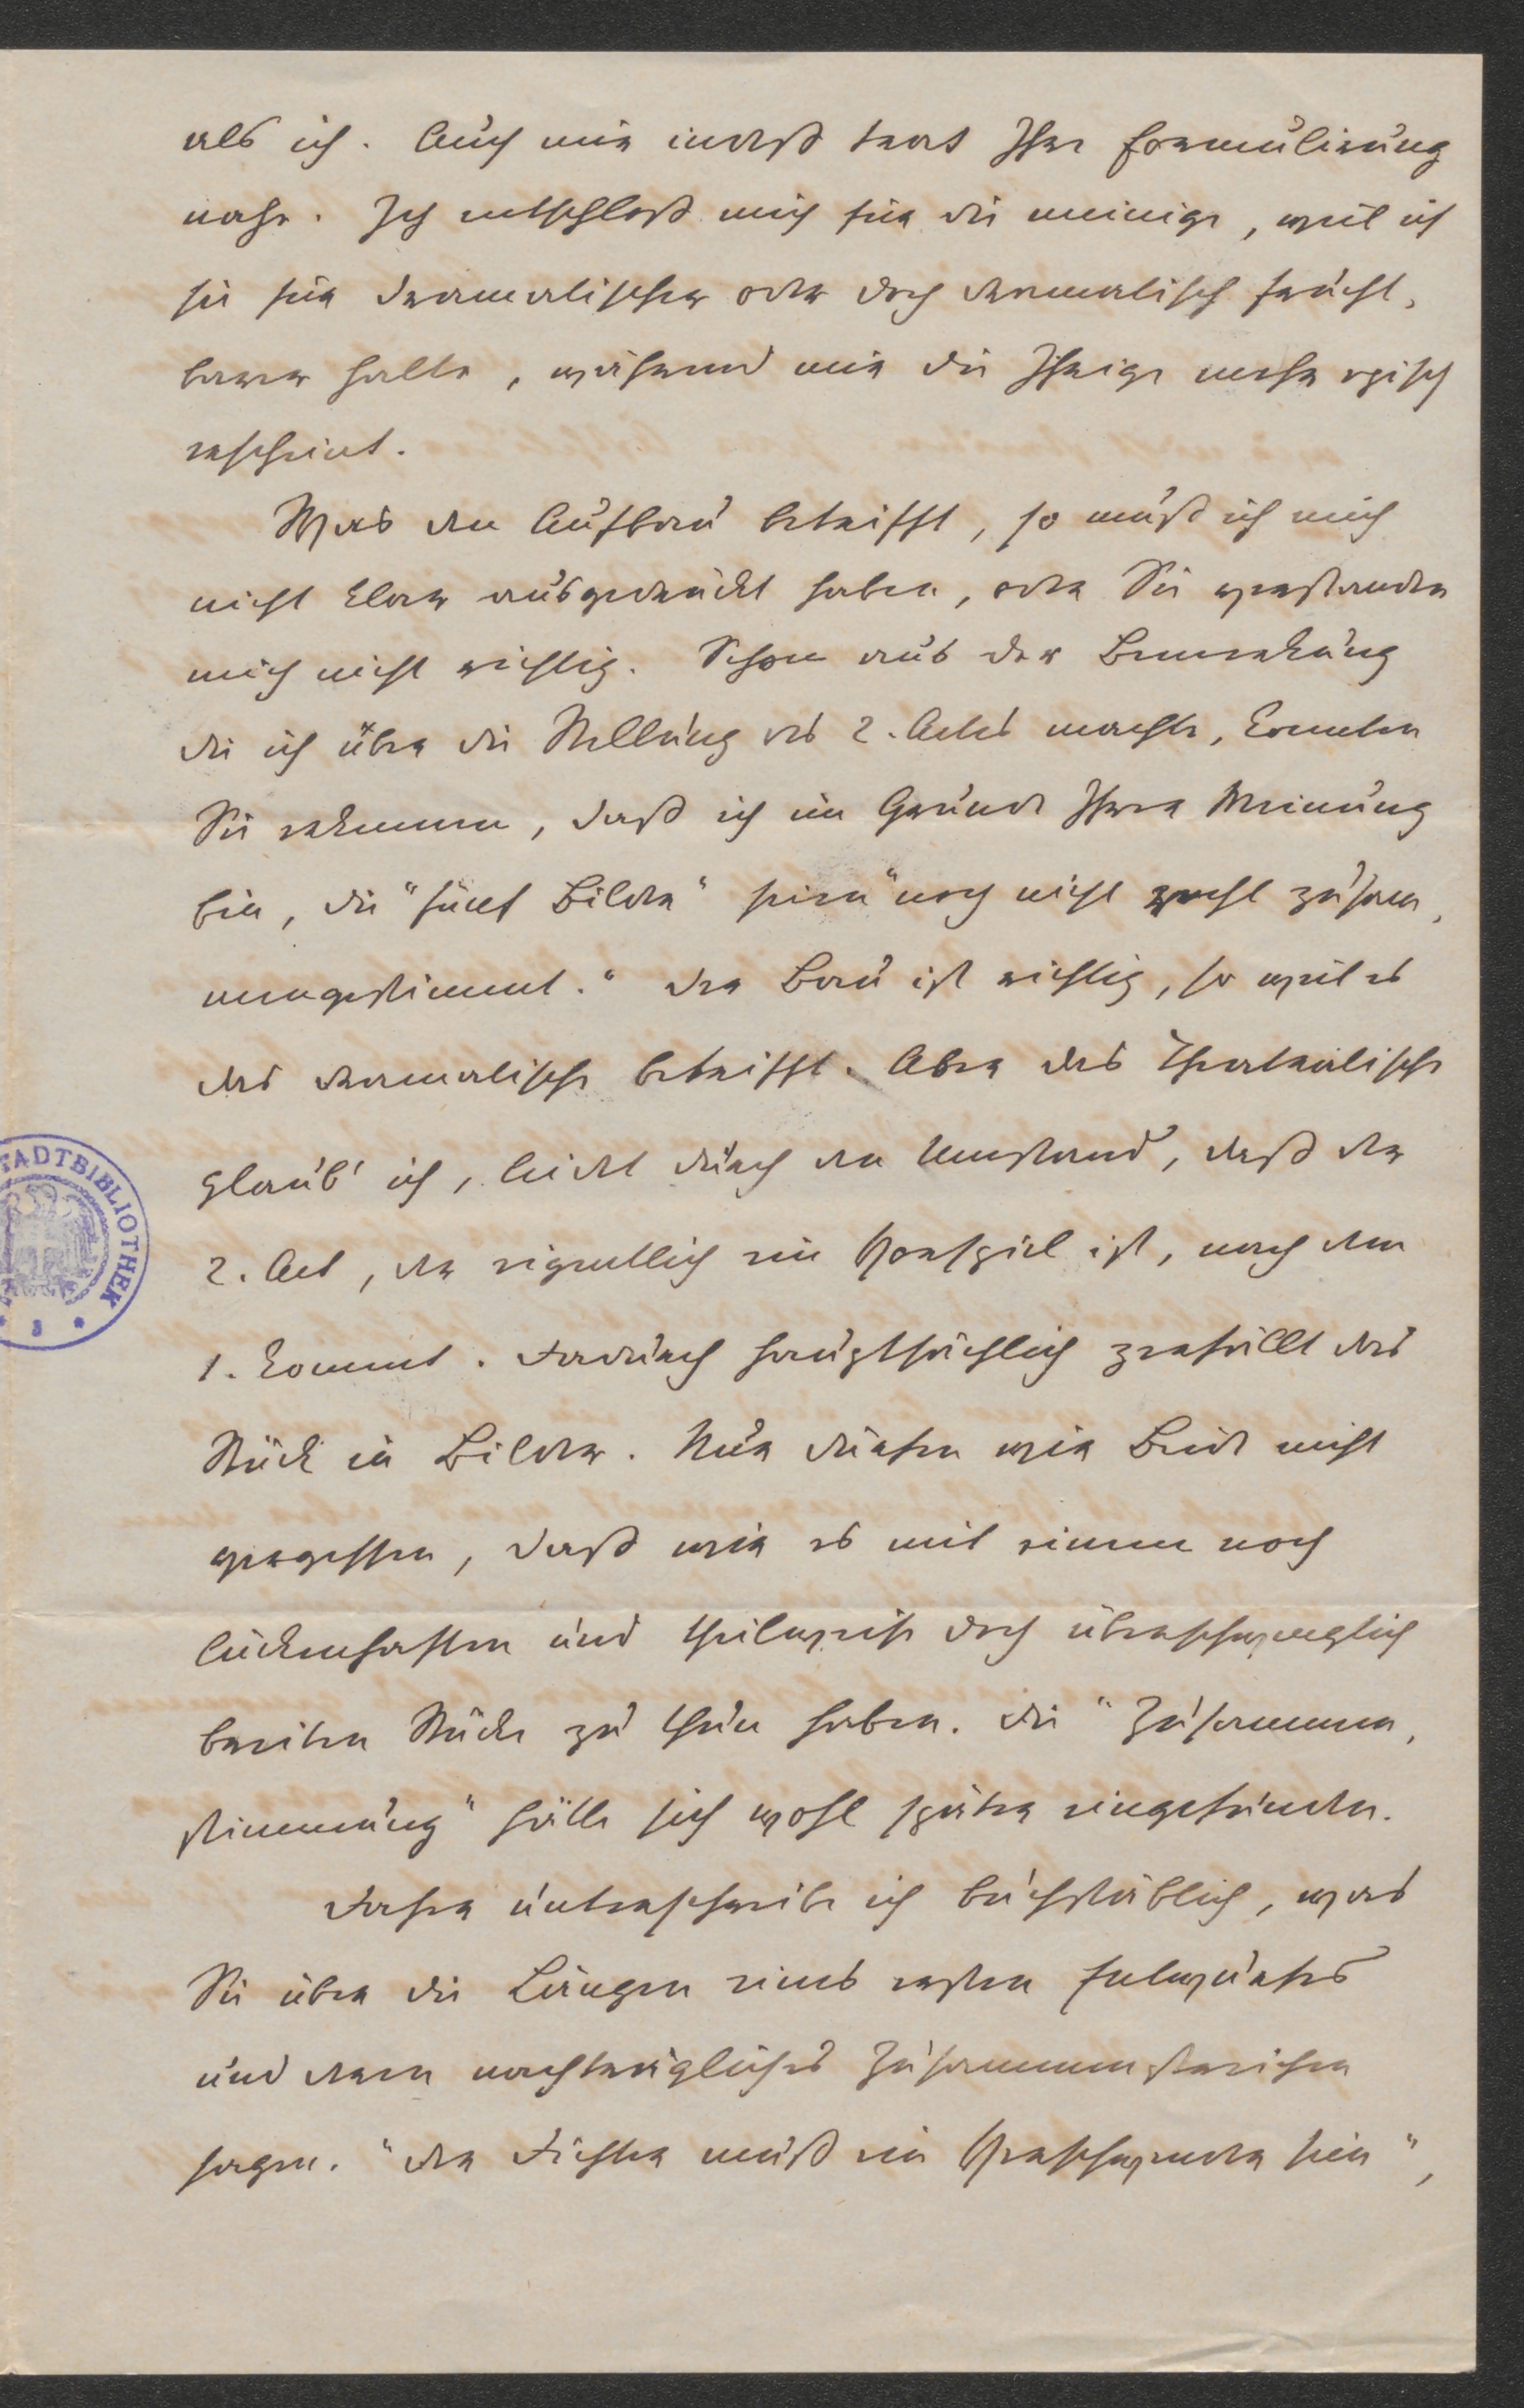 als ich. Auch mir indeß trat Ihre Formulirung
nahe. Ich entschloß mich für die meinige, weil ich
sie für dramatischer oder doch dramatisch frucht-
barer halte, während mir die Ihrige mehr episch
erscheint.
Was den Aufbau betrifft, so muß ich mich
nicht klar ausgedrückt haben, oder Sie verstanden
mich nicht richtig. Schon aus der Bemerkung
die ich über die Stellung des 2. Actes machte, konnten
Sie erkennen, daß ich im Grunde Ihrer Meinung
bin, die "fünf Bilder" seien "noch nicht recht zusam-
mengestimmt." Der Bau ist richtig, so weit es
das dramatische betrifft. Aber das Theatralische
glaub' ich, leidet durch den Umstand, daß der
2. Act, der eigentlich ein Vorspiel ist, nach dem
1. kommt. Dadurch hauptsächlich zerfällt das
Stück in Bilder. Nur dürfen wir Beide nicht
vergessen, daß wir es mit einem noch
lückenhaften und theilweise doch überschwenglich
breiten Stücke zu thun haben. Die "Zusammen-
stimmung" hätte sich wohl später eingefunden.
Daher unterschreibe ich buchstäblich, was
Sie über die Längen eines ersten Entwurfes
und deren nachträgliches Zusammenstreichen
sagen. "Der Dichter muß ein Verschwender sein",
STADTBIBLIOTHEK